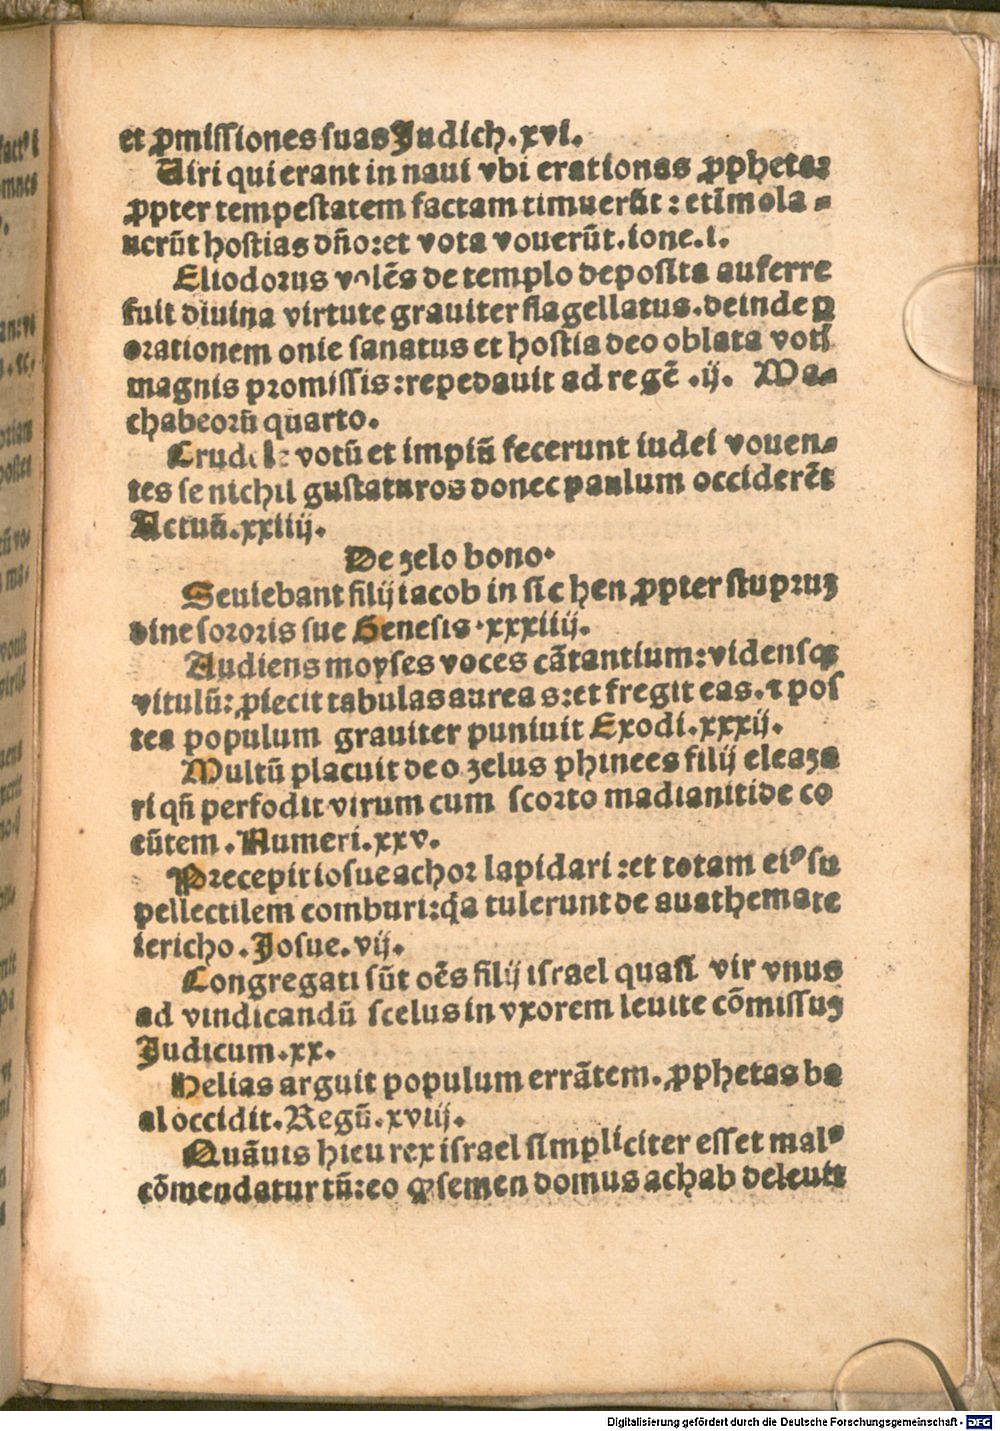 et ꝓmiſſiones ſuas Judich.xvi.
Uiri qui erant in naui vbi erat ionas ꝓpheta:
ꝓpter tempeſtatem factam timuerūt : et īmola-
uerūt hoſtias dño:et vota vouerūt.ione.i.
Eliodorus volēs de templo depoſita auferre
fuit diuina virtute grauiter flagellatus.deinde ꝑ
orationem onie ſanatus et hoſtia deo oblata votſ
magnis promiſſis:repedauit ad regē .ij. Ma-
chabeorū quarto.
Crudele votū et impiū fecerunt iudei vouen-
tes ſe nichil guſtaturos donec paulum occiderēt
Actuū.xxiiij.
De zelo bono.
Seuiebant filij iacob in ſichen ꝓpter ſtupruꝫ
dine ſororis ſue Geneſis.xxxiiij.
Audiens moyſes voces cātantium:vidensqꝫ
vitulū: ꝓiecit tabulas aureas:et fregit eas.⁊ poſ
tea populum grauiter puniuit Exodi.xxxij.
Multū placuit deo zelus phinees filij eleaza
ri qñ perfodit virum cum ſcorto madianitide co
eūtem. Numeri.xxv.
Precepit ioſue achor lapidari:et totam eiꝰ ſu
pellectilem comburi:qꝛ tulerunt de anathemate
iericho. Joſue.vij.
Congregati ſūt oēs filij iſrael quaſi vir vnus
ad vindicandū ſcelus in vxorem leuite cōmiſſuꝫ
Judicum.xx.
Helias arguit populum errātem.ꝓphetas ba
al occidit. Regū.xviij.
Quāuis hieu rex iſrael ſimpliciter eſſet malꝰ
cōmendatur tñ:eo ꝙ ſemen domus achab deleuit
Digitalisierung gefördert durch die Deutsche Forschungsgemeinschaft - DFG